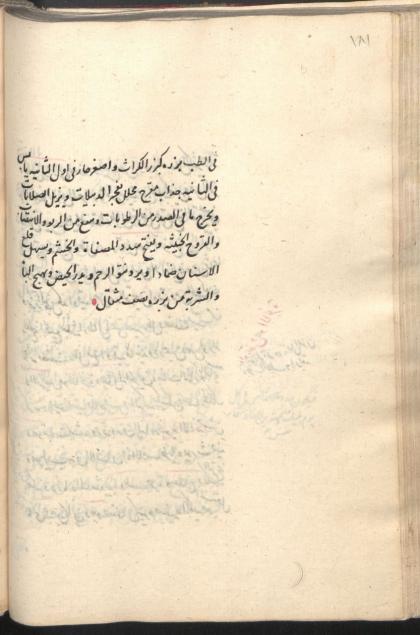 ١٨١
فى الطب بزره كبزر الكراث واصغر حار فى اول الثانية يابس
فى الثانية جذاب مقرح محلل يفجر الدملات ويزيل الصلابات
ويخرج ما فى الصدر من الرطوبات وينفع من الربو والاستسقاء
والقروح الخبيثه ويفتح سدد المصفاة والخشم ويسهل قلع
الاسنان ضمادا ويرد نتو الرحم ويدر الحيض ويهيج الباه
والشربة من بزره نصف مثقال